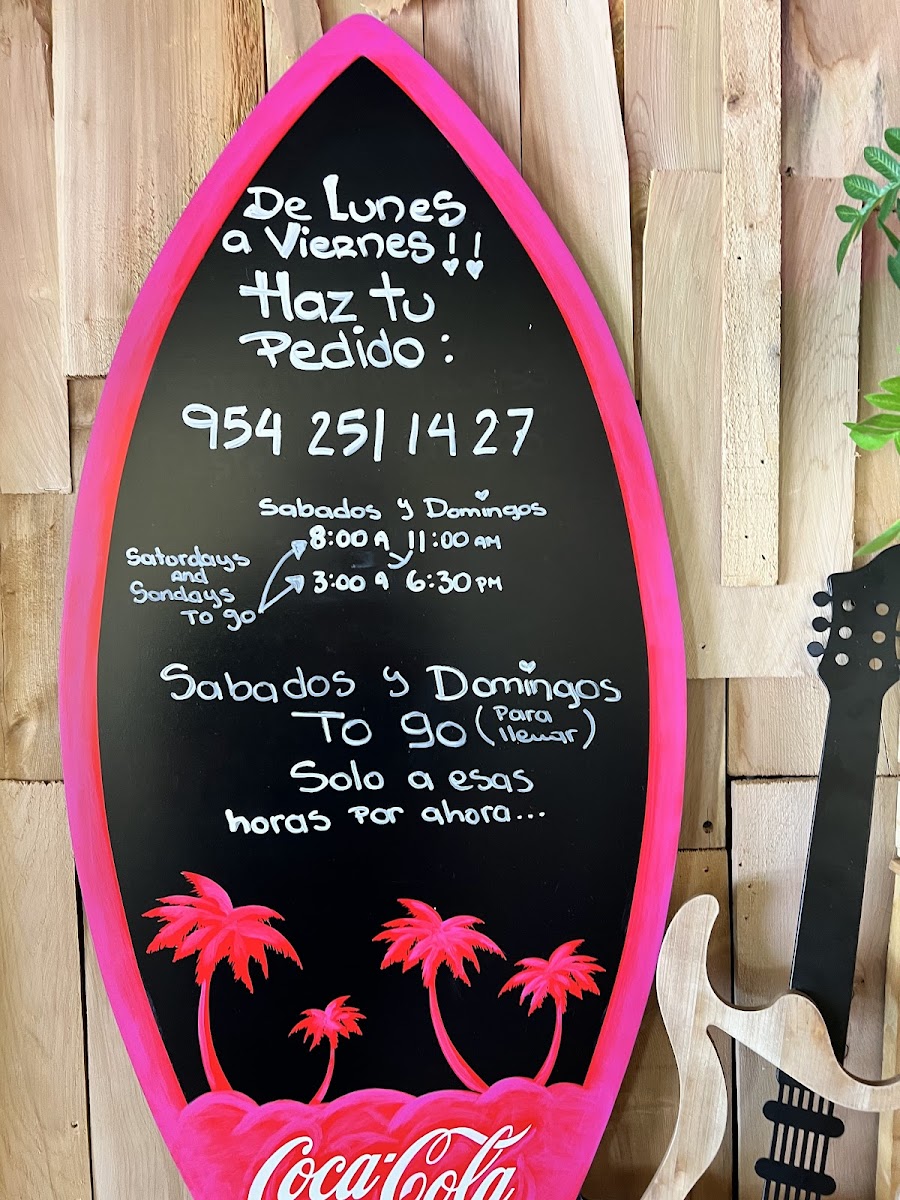 De Lunes
a Viernes!!
Haz tu
Pedido:
954 251 1427
Sabados y Domingos
8:00 A 11:00 AM
y
3:00 A 6:30 PM
Saturdays
and
Sondays
To go
Sabados y Domingos
To go (Para llevar)
Solo a esas
horas Por ahora...
Coca-Cola